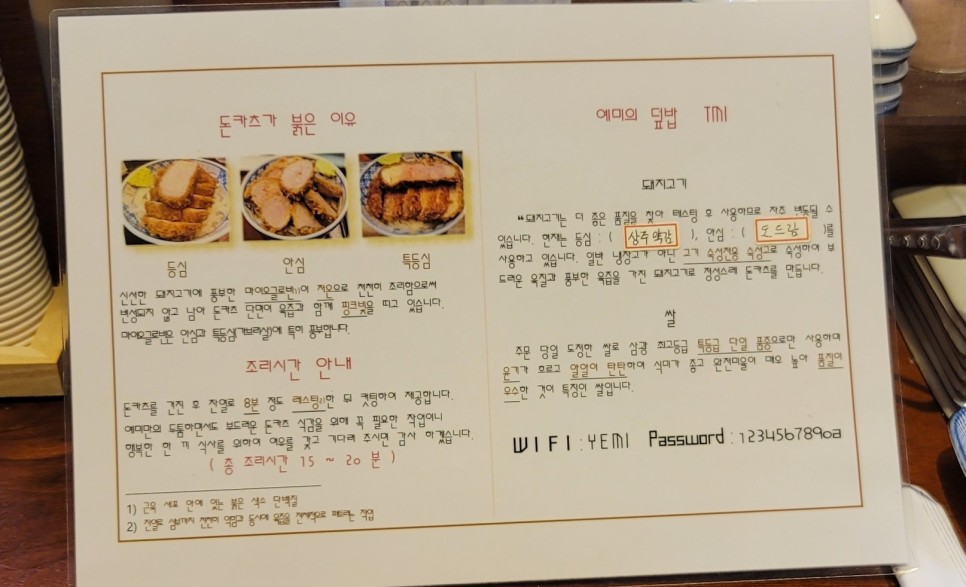 돈카츠가 붉은 이유
등심
안심
특등심
신선한 돼지고기에 풍부한 마이오글로빈1)이 저온으로 천천히 조리함으로써
변성되지 않고 남아 돈카츠 단면이 육즙과 함께 핑크빛을 띠고 있습니다.
마이오글로빈은 안심과 특등심(가브리살)에 특히 풍부합니다.
조리시간 안내
돈카츠를 건진 후 잔열로 8분 정도 레스팅2)한 뒤 컷팅하여 제공합니다.
예미만의 도톰하면서도 부드러운 돈카츠 식감을 위해 꼭 필요한 작업이니
행복한 한 끼 식사를 위하여 여유를 갖고 기다려 주시면 감사 하겠습니다.
( 총 조리시간 15 ~ 20 분 )
1) 근육 세포 안에 있는 붉은 색소 단백질
2) 잔열로 심부까지 천천히 익힘과 동시에 육즙을 전체적으로 퍼트리는 작업
예미의 덮밥 TMI
돼지고기
"돼지고기는 더 좋은 품질을 찾아 테스팅 후 사용하므로 자주 변동될 수
있습니다. 현재는 등심 : ( 상주약감 ), 안심 : ( 도드람 )를
사용하고 있습니다. 일반 냉장고가 아닌 고기 숙성전용 숙성고로 숙성하여 부
드러운 육질과 풍부한 육즙을 가진 돼지고기로 정성스레 돈카츠를 만듭니다.
쌀
주문 당일 도정한 쌀로 삼광 최고등급 특등급 단일 품종으로만 사용하여
윤기가 흐르고 알알이 탄탄하여 식미가 좋고 완전미율이 매우 높아 품질이
우수한 것이 특징인 쌀입니다.
WIFI : YEMI Password : 1234567890a